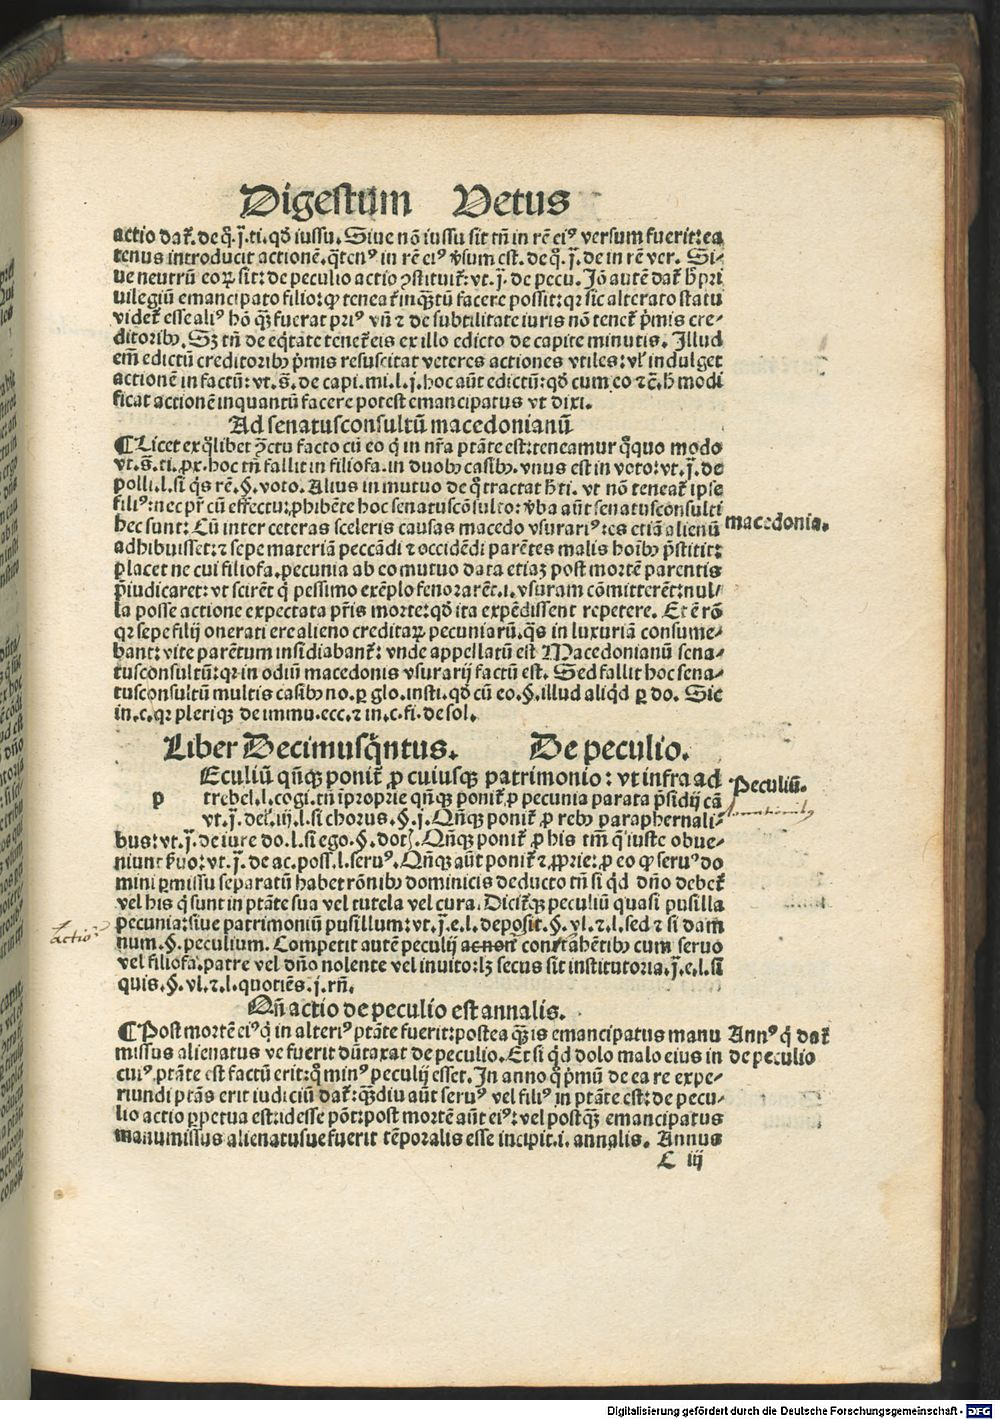 Digestum Vetus
actio dat̃. de q̃. j̄. ti. qđ iussu. Siue nō iussu sit tñ in rē eiꝰ versum fuerit: ea
tenus introducit actionē. q̃tenꝰ in rē eiꝰ v̓sum est. de q̃. j̄. de in rē ver. Si-
ue neutrū eoꝝ sit: de peculio actio ꝯstituit̃: vt. j̄. de pecu. Jō autē dat̃ h̄ pri
uilegiū emancipato filio: ꝙ teneat̃ inq̃ꝫtū facere possit: qꝛ sic alterato statu
videt̃ esse aliꝰ hō q̃ꝫ fuerat priꝰ vñ ⁊ de subtilitate iuris nō tenet̃ p̃mis cre-
ditoribꝰ. Sꝫ tñ de eq̃tate tenet̃ eis ex illo edicto de capite minutis. Illud
em̄ edictū creditoribꝰ p̃mis resuscitat veteres actiones vtiles: vl̓ indulget
actionē in factū: vt. s̄. de capi. mi. l. j. hoc aūt edictū: qđ cum eo ⁊ c̄. h̄ modi
ficat actionē inquantū facere potest emancipatus vt dixi.
Ad senatusconsultū macedonianū
¶ Licet ex q̃libet ꝯ̃ctu facto cū eo q̓ in nr̃a ptāte est: teneamur q̃quo modo
vt. s̄. ti. ꝓx. hoc tñ fallit in filiofa. in duobꝰ casibꝰ. vnus est in voto: vt. j̄. de
polli. l. si q̓s rē. §. voto. Alius in mutuo de q̃ tractat h̄ ti. vt nō teneat̃ ipse
filiꝰ: nec pr̄ cū effectu: ꝓhibēte hoc senatuscōsulto: v̓ba aūt senatusconsulti
hec sunt: Cū inter ceteras sceleris causas macedo vsurariꝰ: es etiā alienū
macedonia.
adhibuisset: ⁊ sepe materiā peccādi ⁊ occidēdi parētes malis hoībꝰ p̄stitit:
placet ne cui filiofa. pecunia ab eo mutuo data etiaꝫ post mortē parentis
p̄iudicaret: vt scirēt q̓ pessimo exēplo fenorarēt. i. vsuram cōmitterēt: nul-
la posse actione expectata pr̄is morte: qđ ita expēdissent repetere. Et ē rō
qꝛ sepe filij onerati ere alieno creditaꝝ pecuniarū. q̃s in luxuriā consume-
bant: vite parētum insidiabant̃: vnde appellatū est Macedonianū sena-
tusconsultū: qꝛ in odiū macedonis vsurarij factū est. Sed fallit hoc sena-
tusconsultū multis casibꝰ no. ꝑ glo. insti. qđ cū eo. §. illud aliq̓d ꝑ do. Sic
in. c. qꝛ pleriqꝫ de immu. ecc. ⁊ in. c. fi. de sol.
Liber Decimusq̓ntus. De peculio.
Eculiū qñqꝫ ponit̃ ꝓ cuiusqꝫ patrimonio: vt infra ad
Peculiū.
p trebel. l. cogi. tñ īproprie qñqꝫ ponit̃ ꝓ pecunia parata p̄sidij cā
vt. j̄. de. iiij. l. si chorus. §. j. Qñqꝫ ponit̃ ꝓ rebꝰ paraphernali-
bus: vt. j̄. de iure do. l. si ego. §. dot. Qñqꝫ ponit̃ ꝓ his tm̄ q̄ iuste obue-
niunt ẜuo: vt. j̄. de ac. poss. l. seruꝰ. Qñqꝫ aūt ponit̃ ⁊ ꝓprie: ꝓ eo ꝙ seruꝰ do
mini ꝑmissu separatū habet rōnibꝰ dominicis deducto tñ si q̓d dño debet̃
vel his q̓ sunt in ptāte sua vel tutela vel cura. Dicit̃qꝫ peculiū quasi pusilla
pecunia: siue patrimoniū pusillum: vt. j̄. e. l. deposit. §. vl. ⁊. l. sed ⁊ si dam
Actio
num. §. peculium. Competit autē peculij cont̃ahētibꝰ cum seruo
vel filiofa. patre vel dño nolente vel inuito: lꝫ secus sit institutoria. j̄. e. l. si
quis. §. vl. ⁊. l. quotiēs. j. rñ.
Qñ actio de peculio est annalis.
¶ Post mortē eiꝰ q̓ in alteriꝰ ptāte fuerit: postea q̃ꝫ is emancipatus manu
Annꝰ q̓ dat̃
missus alienatus ve fuerit dūtaxat de peculio. Et si q̓d dolo malo eius in
de peculio
cuiꝰ ptāte est factū erit: q̃ minꝰ peculij esset. In anno q̃ p̃mū de ea re expe-
riundi ptās erit iudiciū dat̃: q̃ꝫdiu aūt seruꝰ vel filiꝰ in ptāte est: de pecu-
lio actio ꝑpetua est: idesse pōt: post mortē aūt eiꝰ: vel postq̃ꝫ emancipatus
manumissus alienatusue fuerit tēporalis esse incipit. i. annalis. Annus
C iij
Digitalisierung gefördert durch die Deutsche Forschungsgemeinschaft - DFG